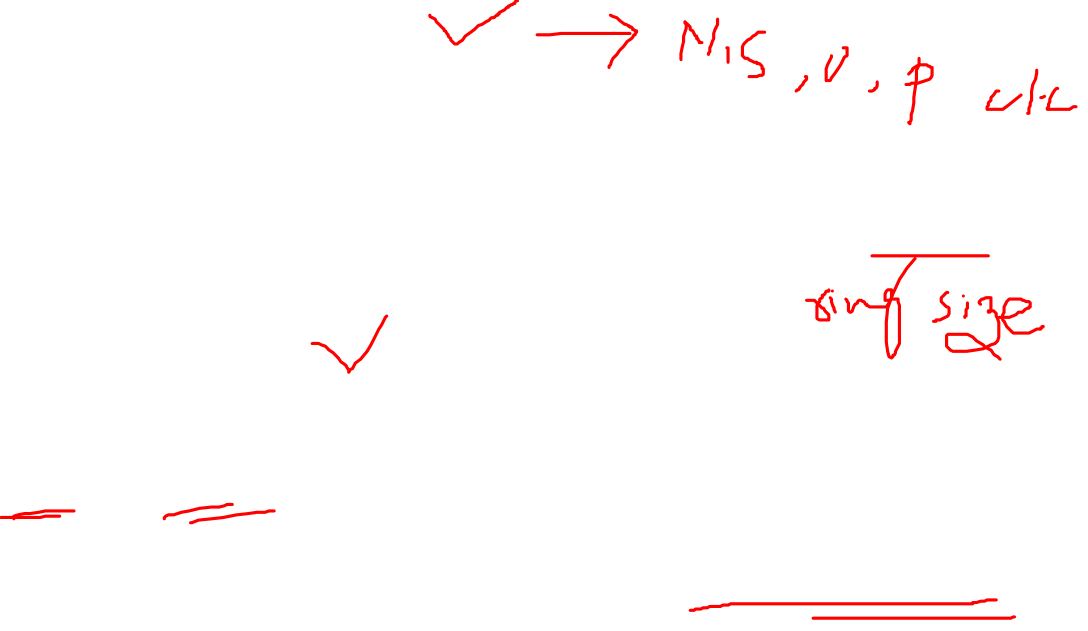 → N, S, O, P etc
ring size